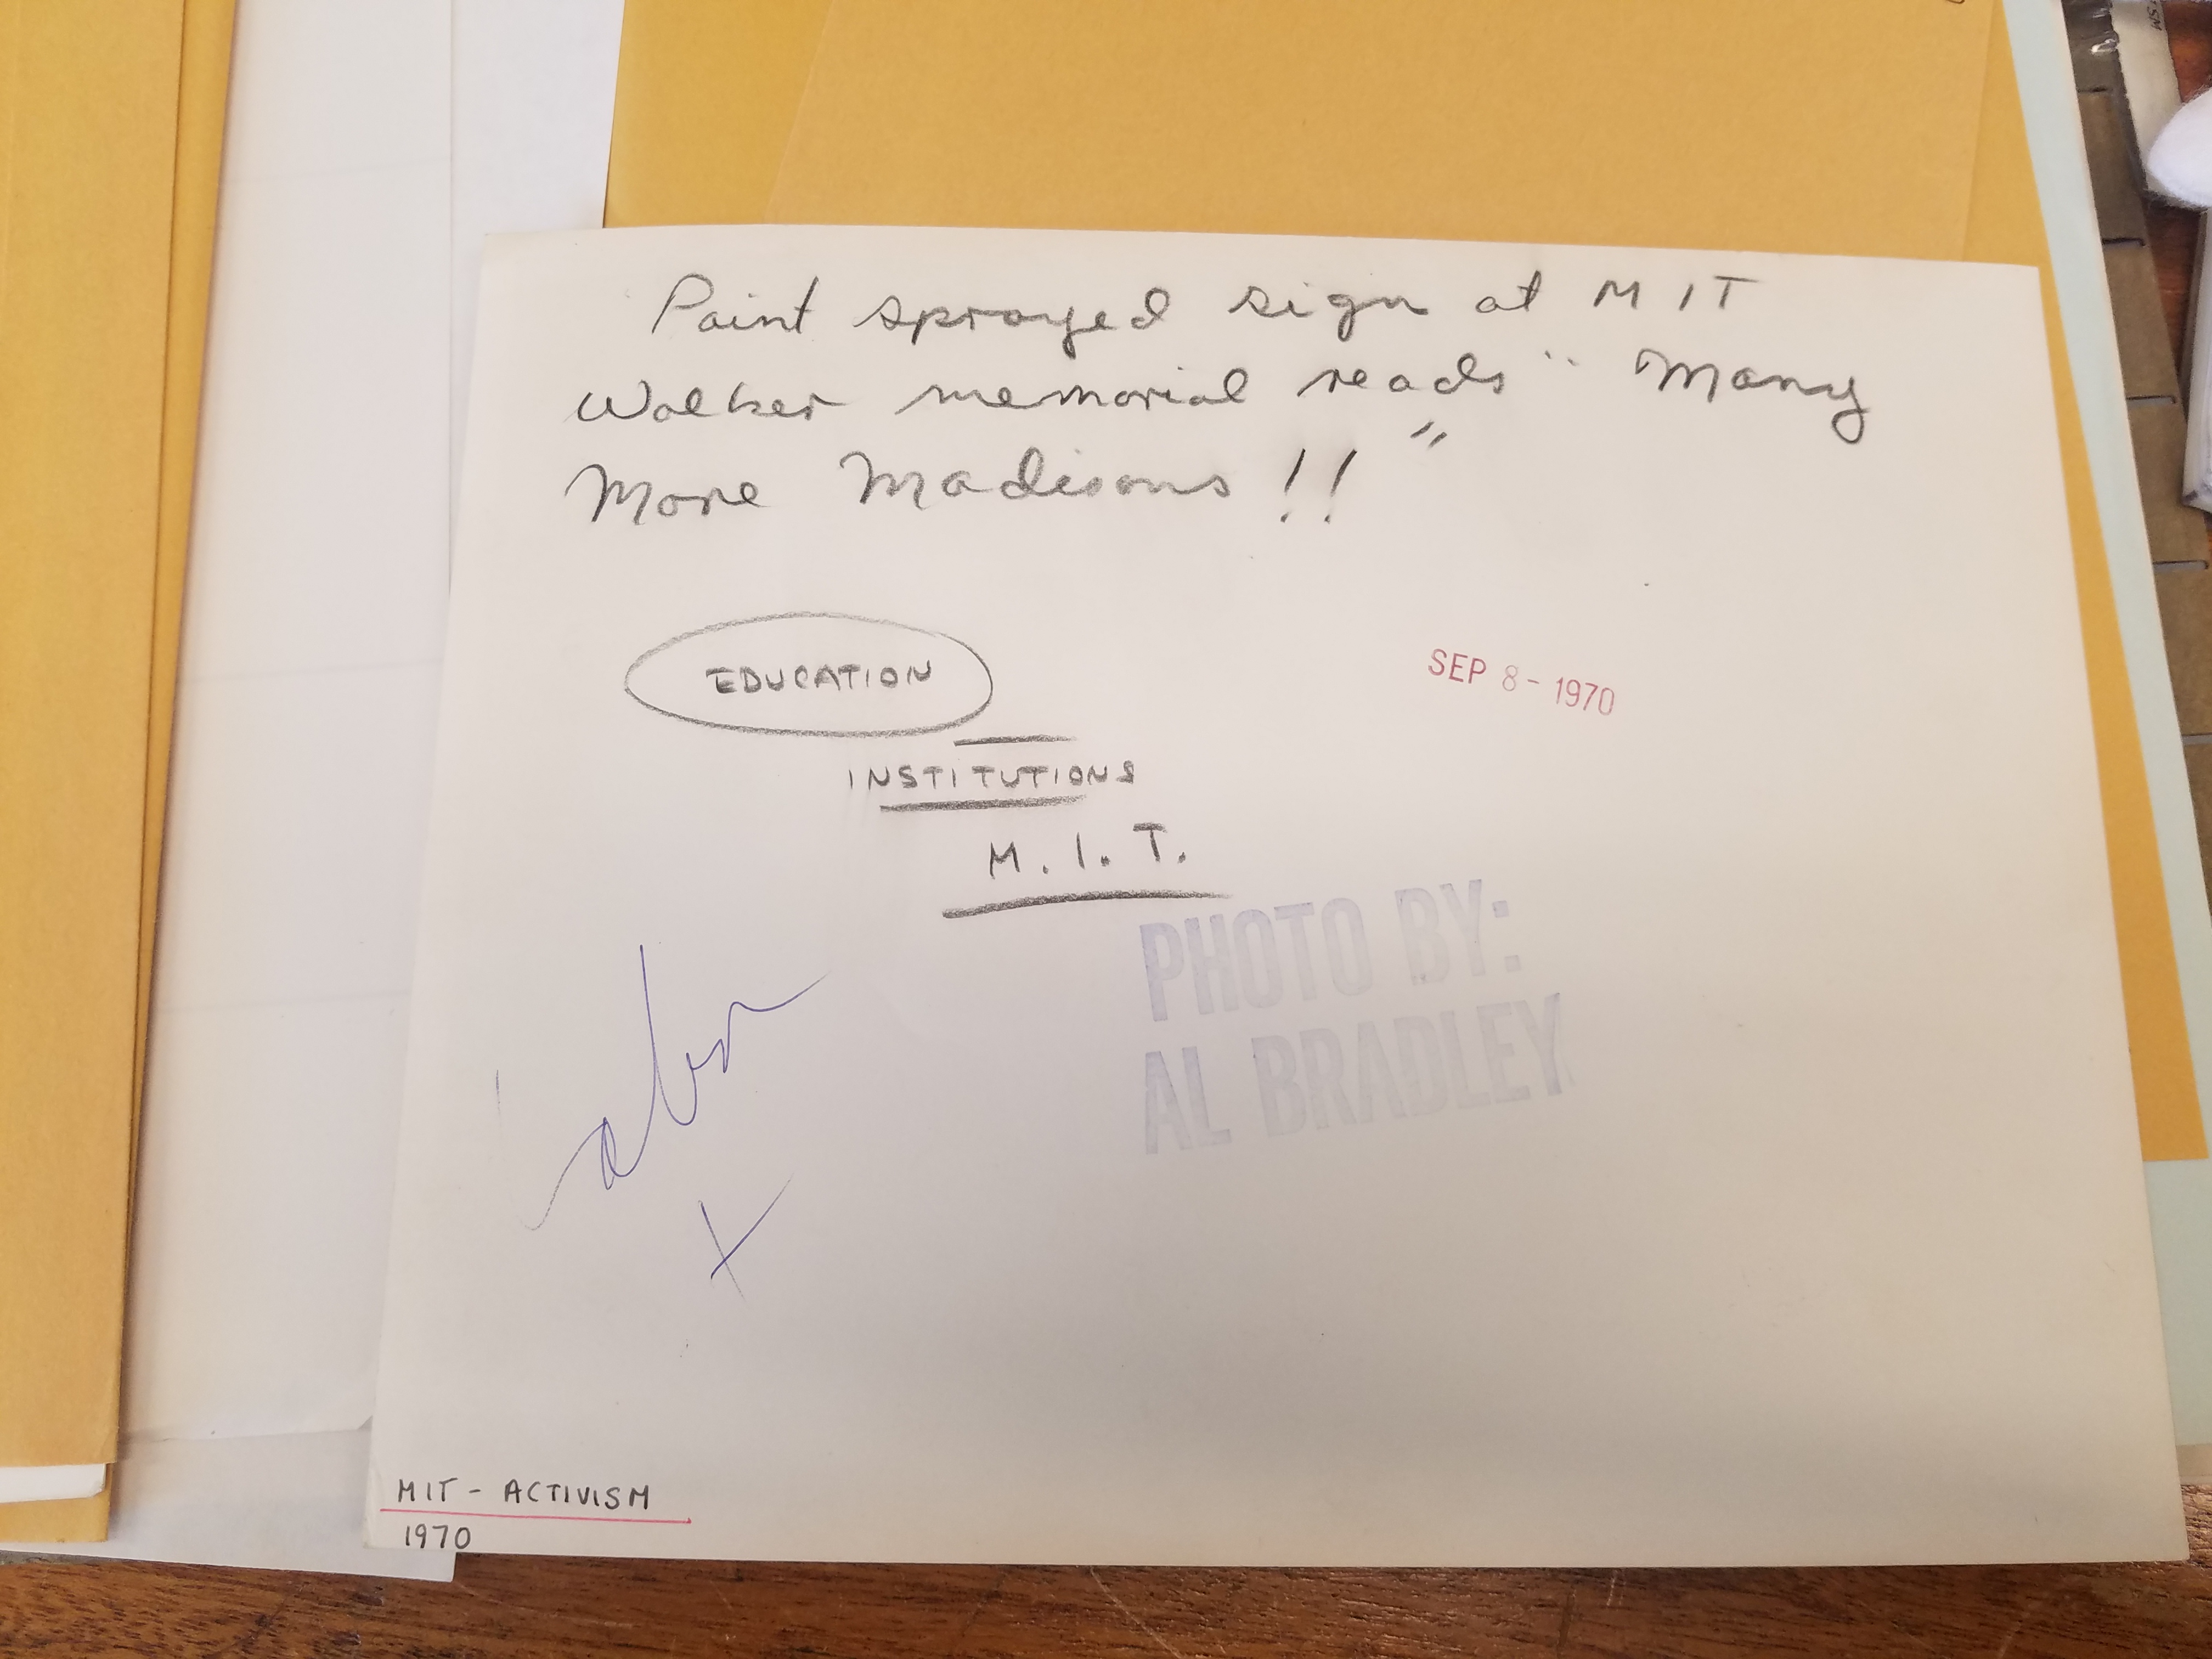 Paint sprayed sign at MIT
Walker memorial reads "Many
More Madisons!!"
EDUCATION
SEP 8 - 1970
INSTITUTIONS
M.I.T.
PHOTO BY:
AL BRADLEY
MIT - ACTIVISM
1970